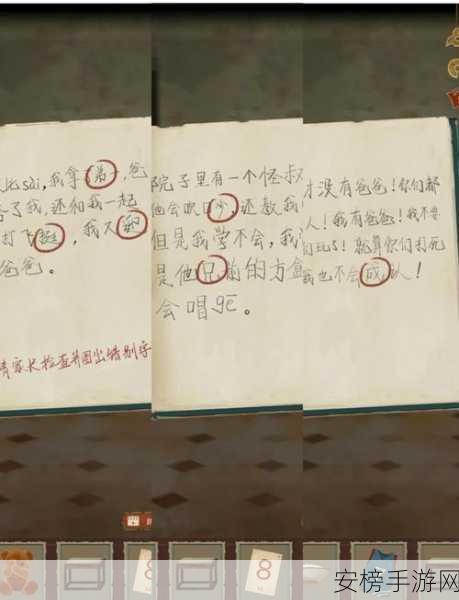 比sài，我拿了弟一，爸
了我，还和我一起
打飞
爸爸。
请家长检查并圈出错别字
院子里有一个怪叔
他会吹口沙，还教我
但是我学不会，我
是他兄前的方盒
会唱gē。
才没有爸爸！你们都
人！我有爸爸！我不要
们玩了！就算你们打死
我也不会成认！
8
8
安榜手游网